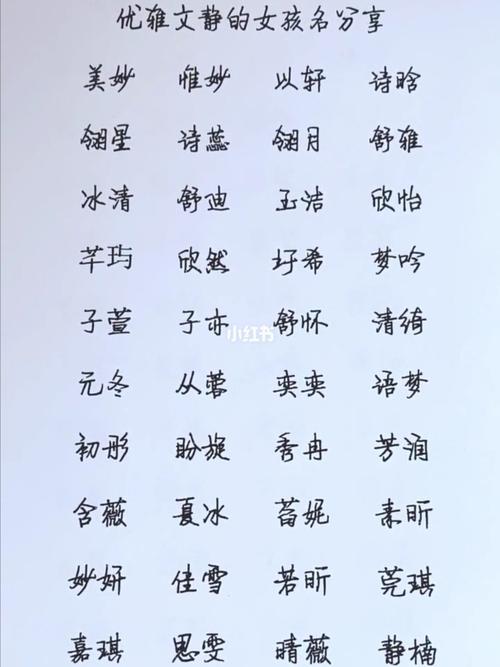 优雅文静的女孩名分享
美妙 惟妙 以轩 诗晗
翎星 诗蕊 翎月 舒雅
冰清 舒迪 玉洁 欣怡
芊玙 欣然 圩希 梦吟
子萱 子亦 舒怀 清绮
小红书
元冬 从蓉 奕奕 语梦
初彤 盼旋 秀冉 芳润
含薇 夏冰 茗妮 素昕
妙妍 佳雪 若昕 莞琪
嘉琪 思雯 晴薇 静楠